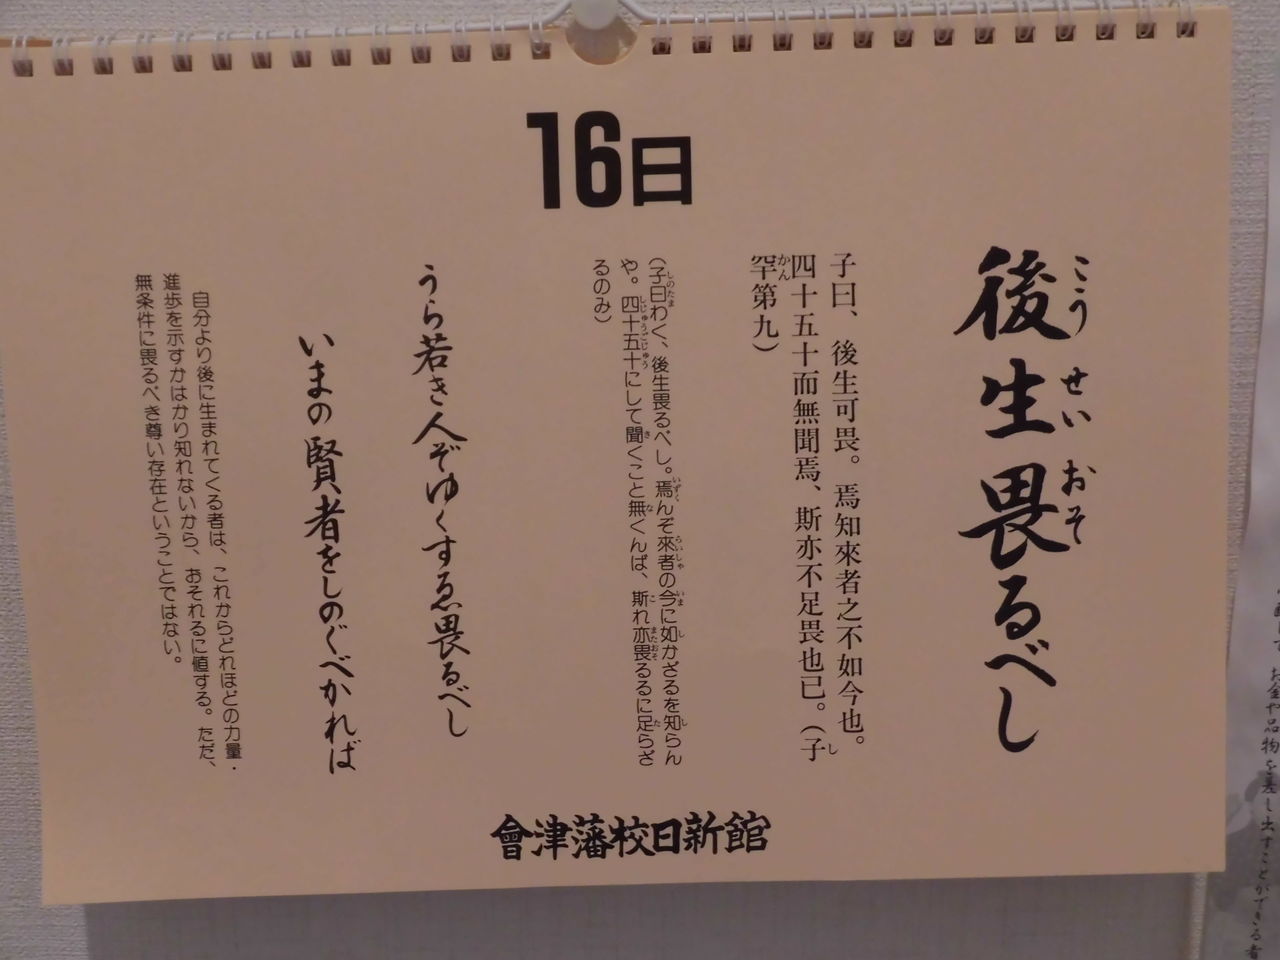 16日
後生畏るべし
こうせいおそ
子曰、後生可畏。焉知來者之不如今也。
四十五十而無聞焉、斯亦不足畏也已。（子
罕第九）
（子曰わく、後生畏るべし。焉んぞ來者の今に如かざるを知らん
や。四十五十にして聞くこと無くんば、斯れ亦畏るるに足らざ
るのみ）
うら若き人ぞゆくすゑ畏るべし
いまの賢者をしのぐべかれば
自分より後に生まれてくる者は、これからどれほどの力量・
進歩を示すかはかり知れないから、おそれるに値する。ただ、
無条件に畏るべき尊い存在ということではない。
會津藩校日新館
お金や品物を差し出すことができる者